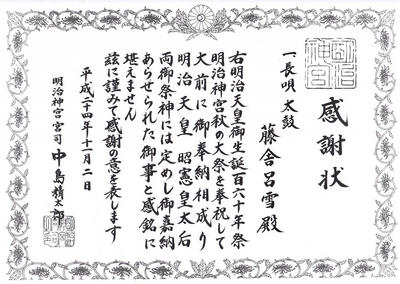 感謝状
一長唄 太鼓
藤舎呂雪殿
右明治天皇御生誕百六十年祭
明治神宮秋の大祭を奉祝して
大前に御奉納相成り
明治天皇 昭憲皇太后
両御祭神には定めし御嘉納
あらせられた御事と感銘に
堪えません
玆に謹みて感謝の意を表します
平成二十四年十一月二日
明治神宮宮司 中島精太郎